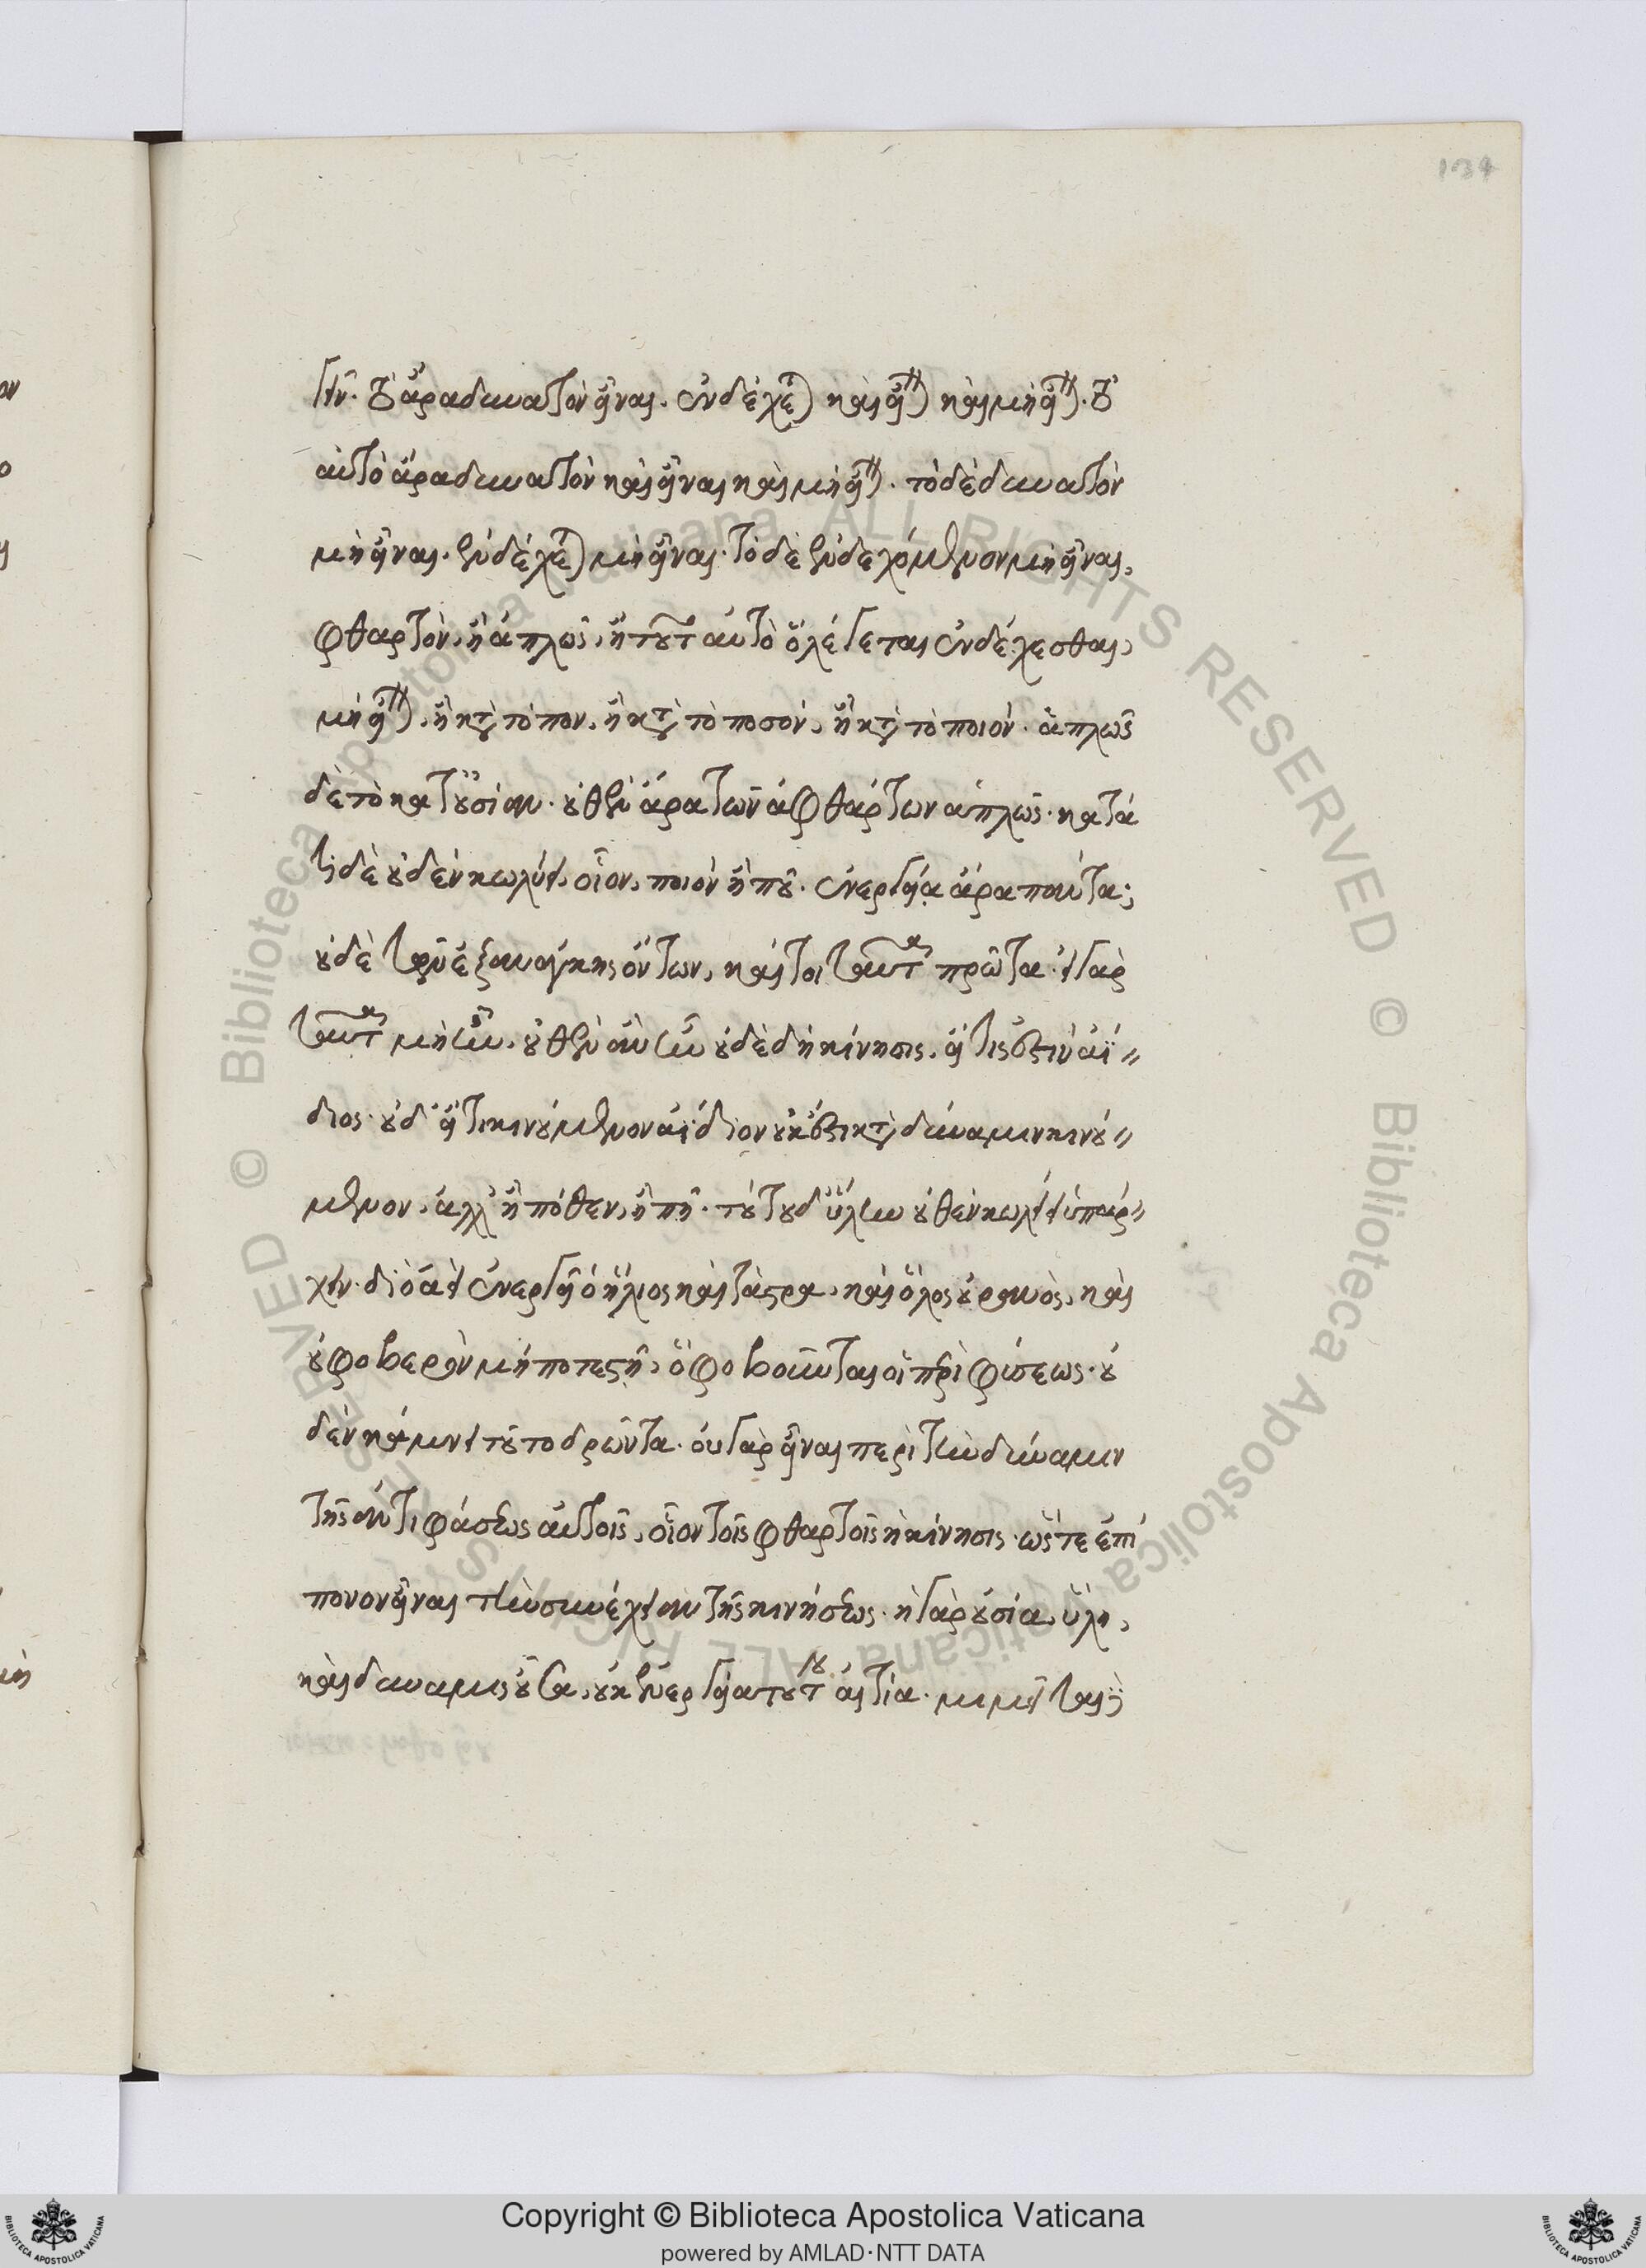 134
γεῖν. τὸ ἄρα δυνατὸν εἶναι. ἐνδέχεται καὶ εἶναι καὶ μὴ εἶναι. τὸ
αὐτὸ ἄρα δυνατὸν καὶ εἶναι καὶ μὴ εἶναι. τὸ δὲ δυνατὸν
μὴ εἶναι. ἐνδέχεται μὴ εἶναι. τὸ δὲ ἐνδεχόμενον μὴ εἶναι,
φθαρτὸν, ἢ ἁπλῶς, ἢ τοῦτ αὐτὸ ὃ λέγεται ἐνδέχεσθαι,
μὴ εἶναι, ἢ κατὰ τόπον, ἢ κατὰ τὸ ποσὸν, ἢ κατὰ τὸ ποιόν. ἁπλῶς
δὲ τὸ κατ' οὐσίαν. οὐθὲν ἄρα τῶν ἀφθάρτων ἁπλῶς. κατά
τι δὲ οὐδὲν κωλύει, οἷον, ποιὸν ἢ ποῦ. ἐνεργείᾳ ἄρα πάντα;
οὐδὲ τῶν ἐξ ἀνάγκης ὄντων, καί τοι ταῦτα πρῶτα. εἰ γὰρ
ταῦτα μὴ ἦν, οὐθὲν ἂν ἦν οὐδὲ δὴ κίνησις, εἴ τις ἐστὶν ἀΐ〃
διος. οὐδ' εἴ τι κινούμενον ἀΐδιον οὐκ ἔστι κατὰ δύναμιν κινού〃
μενον, ἀλλ' ἢ πόθεν, ἢ πῆ. τούτου δ' ὕλην οὐθὲν κωλύει ὑπάρ〃
χειν. διὸ ἀεὶ ἐνεργεῖ ὁ ἥλιος καὶ τἄστρα, καὶ ὅλος οὐρανὸς, καὶ
οὐ φοβερὸν μή ποτε στῆ, ὃ φοβοῦνται οἱ περὶ φύσεως. οὐ
δὲν κάμνει τοῦτο δρῶντα. οὐ γὰρ εἶναι περὶ τὴν δύναμιν
τῆς ἀντιφάσεως αὐτοῖς, οἷον τοῖς φθαρτοῖς ἡ κίνησις. ὥστε ἐπί
πονον εἶναι τὴν συνέχειαν τῆς κινήσεως. ἡ γὰρ οὐσία, ὕλη,
καὶ δύναμις οὖσα, οὐκ ἐνέργεια τούτου αἰτία. μιμεῖται
Copyright © Biblioteca Apostolica Vaticana
powered by AMLAD·NTT DATA